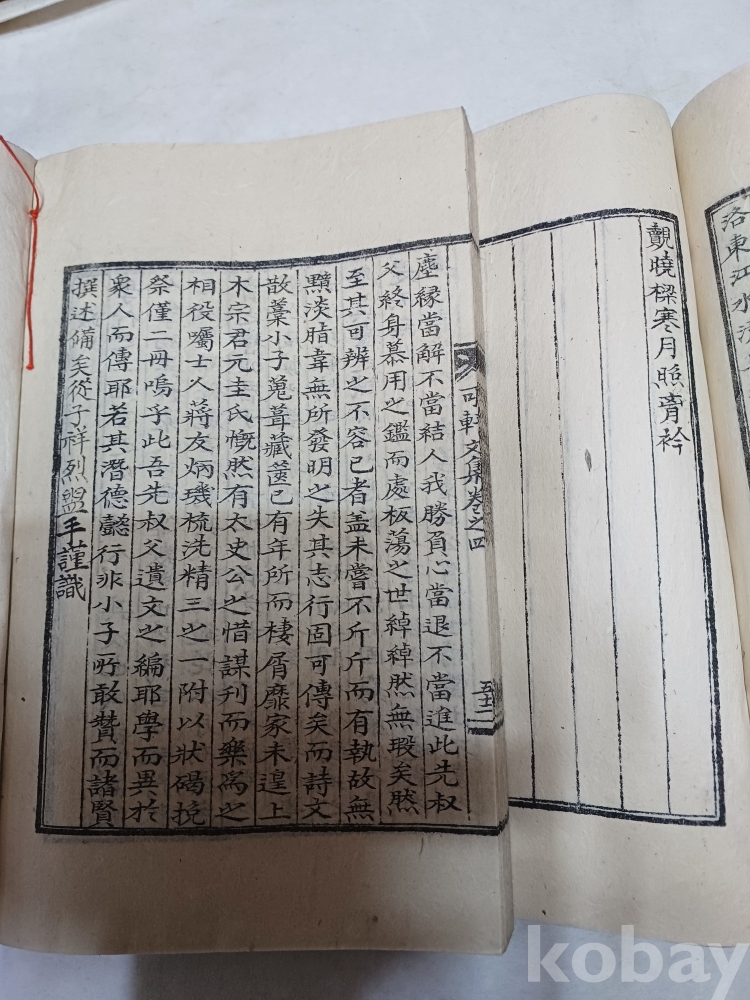 洛東江水
覿曉樑寒月照靑衿
可軒文集卷之四
五二
塵緣當解不當結人我勝負心當退不當進此先叔
父終身慕用之鑑而處板蕩之世綽綽然無瑕矣然
至其可辨之不容已者盖未嘗不斤斤而有執故無
黯淡脂韋無所發明之失其志行固可傳矣而詩文
散藁小子蒐葺藏篋已有年所而棲屑靡家未遑上
木宗君元圭氏慨然有太史公之惜謀刊而樂爲之
相役囑士人蔣友炳璣梳洗精三之一附以狀碣挽
祭僅二冊嗚乎此吾先叔父遺文之編耶學而異於
衆人而傳耶若其潛德懿行非小子所敢贊而諸賢
撰述備矣從子祥烈盥手謹識
kobay